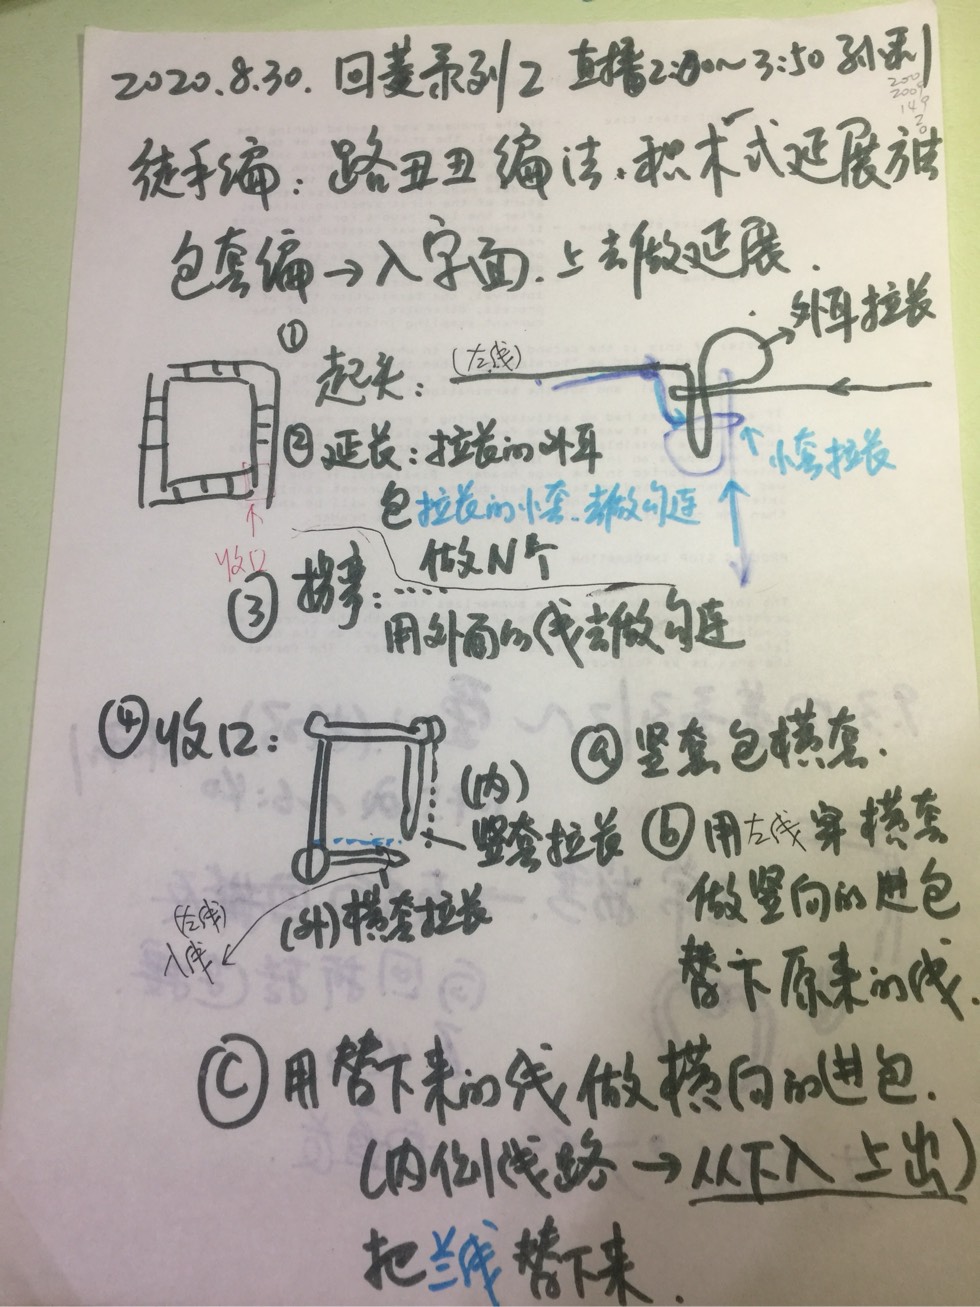 2020.8.30. 回菱系列2 直播2:00~3:50
200
2009
149
20
徒手编：路丑丑编法.积木式延展方法
包套编→入字面.上去做延展.
外耳拉长
① 起头： (左线)
小套拉长
② 延长：拉长的外耳
包拉长的小套.去做勾连
做N个
收口
③ 拐弯:……
用外面的线去做勾连
④收口：
(内)
竖套拉长
(外)横套拉长
(左线)
入线
ⓐ竖套包横套.
ⓑ用左线穿横套
做竖向的进包
替下原来的线.
ⓒ用替下来的线做横向的进包.
(内侧线路→从下入上出)
把兰线替下来.